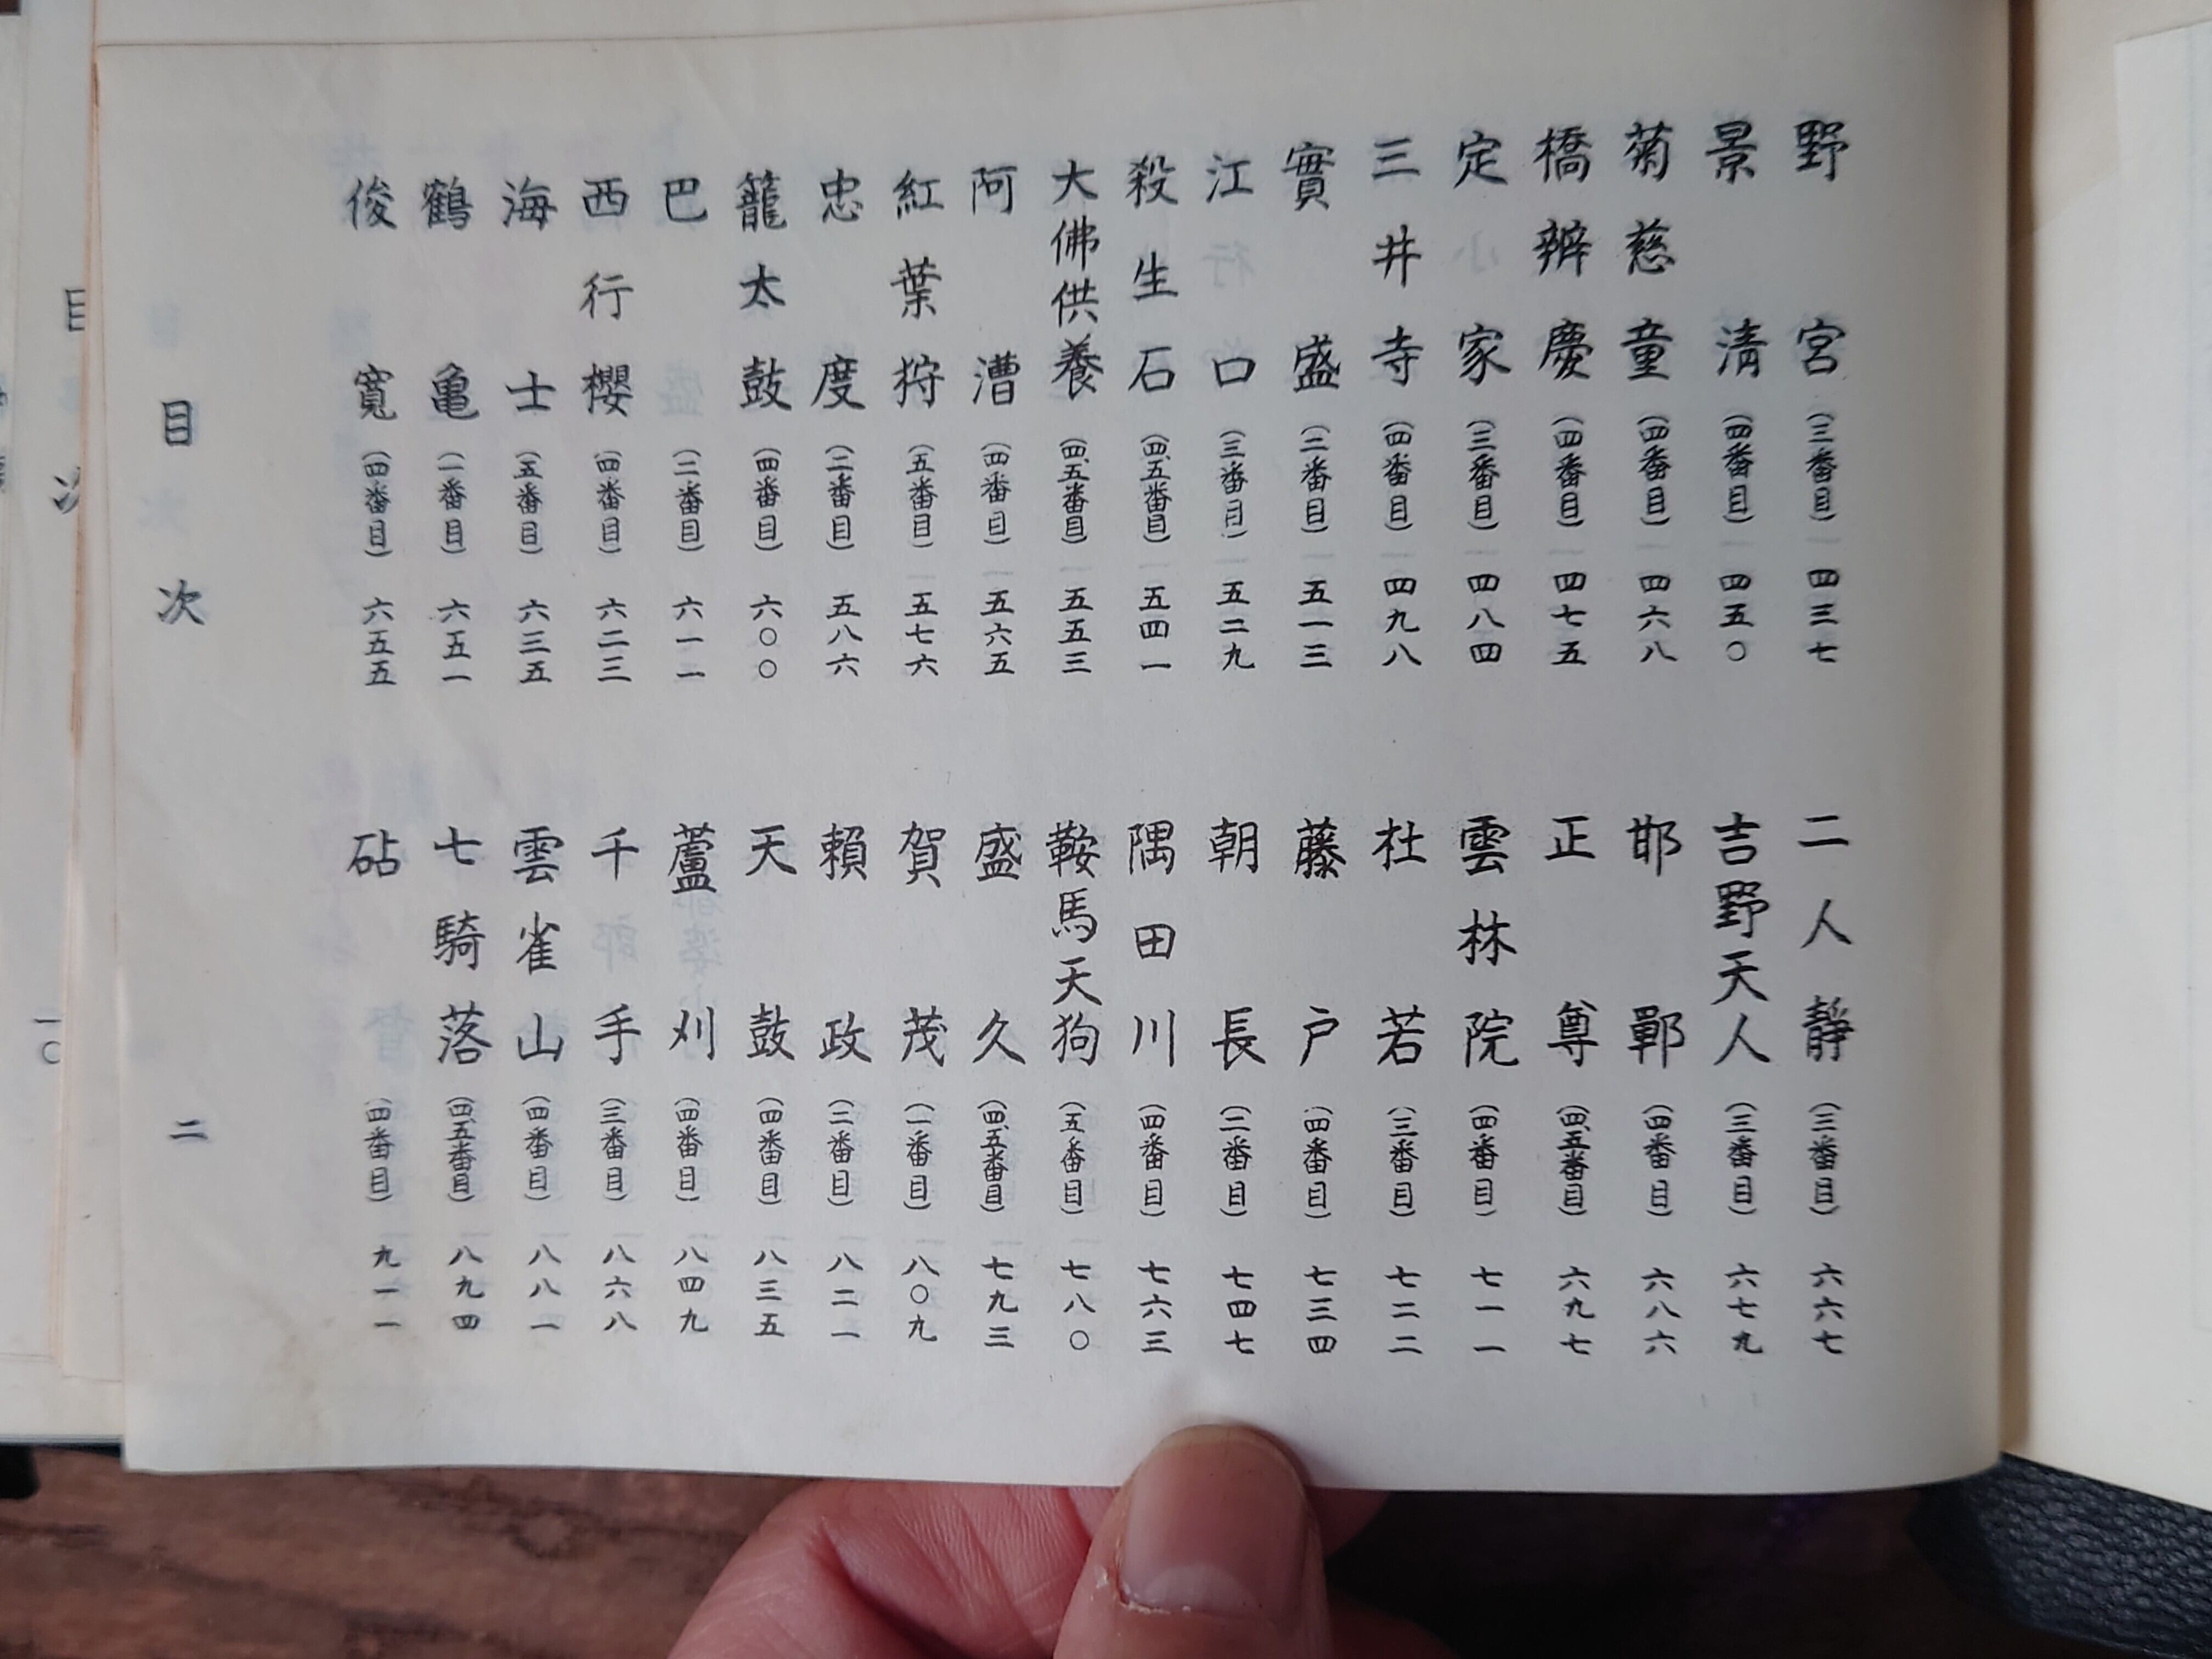 野宮(三番目)四三七
景清(四番目)四五〇
菊慈童(四番目)四六八
橋辨慶(四番目)四七五
定家(三番目)四八四
三井寺(四番目)四九八
實盛(二番目)五一三
江口(三番目)五二九
殺生石(四、五番目)五四一
大佛供養(四、五番目)五五三
阿漕(四番目)五六五
紅葉狩(五番目)五七六
忠度(二番目)五八六
籠太鼓(四番目)六〇〇
巴(二番目)六一一
西行櫻(四番目)六二三
海士(五番目)六三五
鶴亀(一番目)六五一
俊寛(四番目)六五五
二人靜(三番目)六六七
吉野天人(三番目)六七九
邯鄲(四番目)六八六
正尊(四、五番目)六九七
雲林院(四番目)七一一
杜若(三番目)七二二
藤戸(四番目)七三四
朝長(二番目)七四七
隅田川(四番目)七六三
鞍馬天狗(五番目)七八〇
盛久(四、五番目)七九三
賀茂(一番目)八〇九
頼政(二番目)八二一
天鼓(四番目)八三五
蘆刈(四番目)八四九
千手(三番目)八六八
雲雀山(四番目)八八一
七騎落(四、五番目)八九四
砧(四番目)九一一
目次
二
目次
一〇